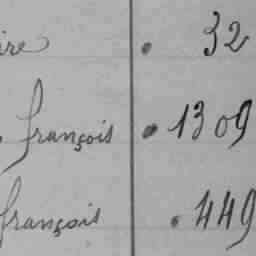 ire . 32
françois . 1309
françois . 449